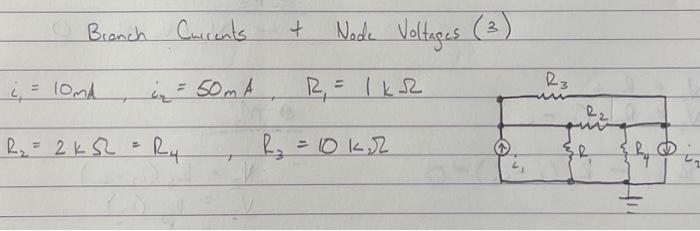 Branch Currents + Node Voltages (3)
i₁ = 10mA, i₂ = 50mA, R₁ = 1kΩ
R₂ = 2kΩ = R₄, R₃ = 10kΩ
R₃
R₂
i₁
R₁
R₄
i₂